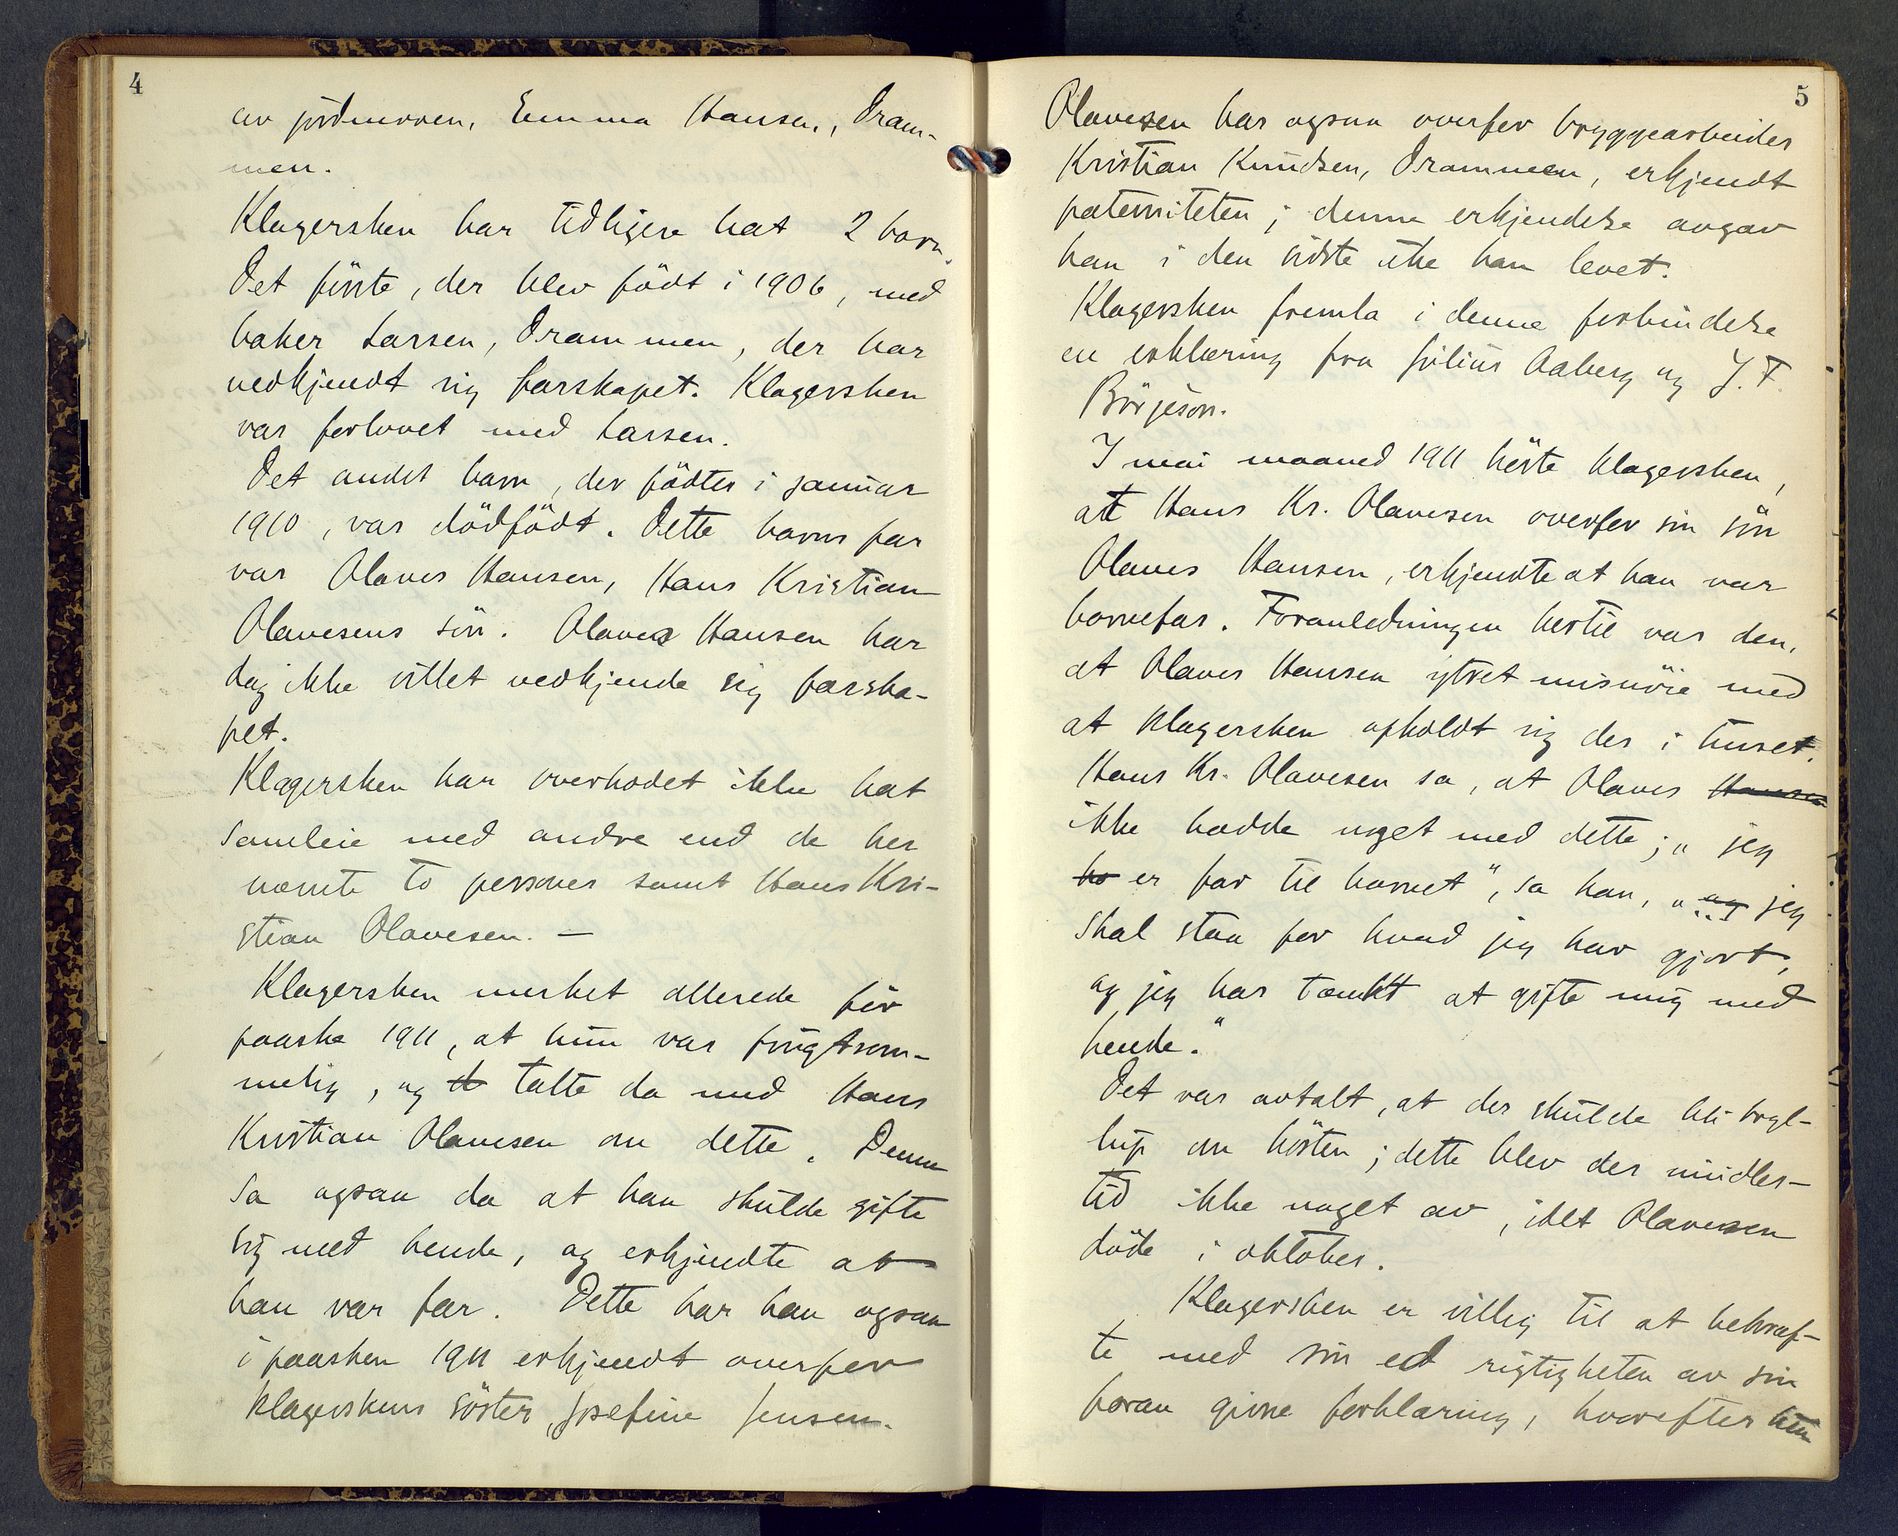 4
av jordmoren, Emma Hansen, Dram-
men.
Klagersken har tidligere hat 2 barn.
Det første, der blev født i 1906, med
baker Larsen, Drammen, der har
vedkjendt sig farskapet. Klagersken
var forlovet med Larsen.
Det andet barn, der fødtes i januar
1910, var dødfødt. Dette barns far
var Olaves Hansen, Hans Kristian
Olavesens søn. Olaves Hansen har
dog ikke villet vedkjende sig farska-
pet.
Klagersken har overhodet ikke hat
samleie med andre end de her
nævnte to personer samt Hans Kri-
stian Olavesen. —
Klagersken merket allerede før
paaske 1911, at hun var frugtsom-
melig, og talte da med Hans
Kristian Olavesen om dette. Denne
sa ogsaa da at han skulde gifte
sig med hende, og erkjendte at
han var far. Dette har han ogsaa
i paasken 1911 erkjendt overfor
klagerskens søster, Josefine Jensen.
5
Olavesen har ogsaa overfor bryggearbeider
Kristian Knudsen, Drammen, erkjendt
paterniteten; denne erkjendelse avgav
han i den sidste uke han levet.
Klagersken fremla i denne forbindelse
en erklæring fra Julius Aaberg og J. F.
Börjeson.
I mai maaned 1911 hørte klagersken,
at Hans Kr. Olavesen overfor sin søn
Olaves Hansen, erkjendte at han var
barnefar. Foranledningen hertil var den,
at Olaves Hansen ytret misnøie med
at klagersken opholdt sig der i huset.
Hans Kr. Olavesen sa, at Olaves Hansen
ikke hadde noget med dette; „jeg
ha er far til barnet", sa han, „og jeg
skal staa for hvad jeg har gjort,
og jeg har tænkt at gifte mig med
hende."
Det var avtalt, at der skulde bli bryl-
lup om høsten; dette blev der imidler-
tid ikke noget av, idet Olavesen
døde i oktober.
Klagersken er villig til at bekræf-
te med sin ed rigtigheten av sin
foran givne forklaring, hvorefter hun